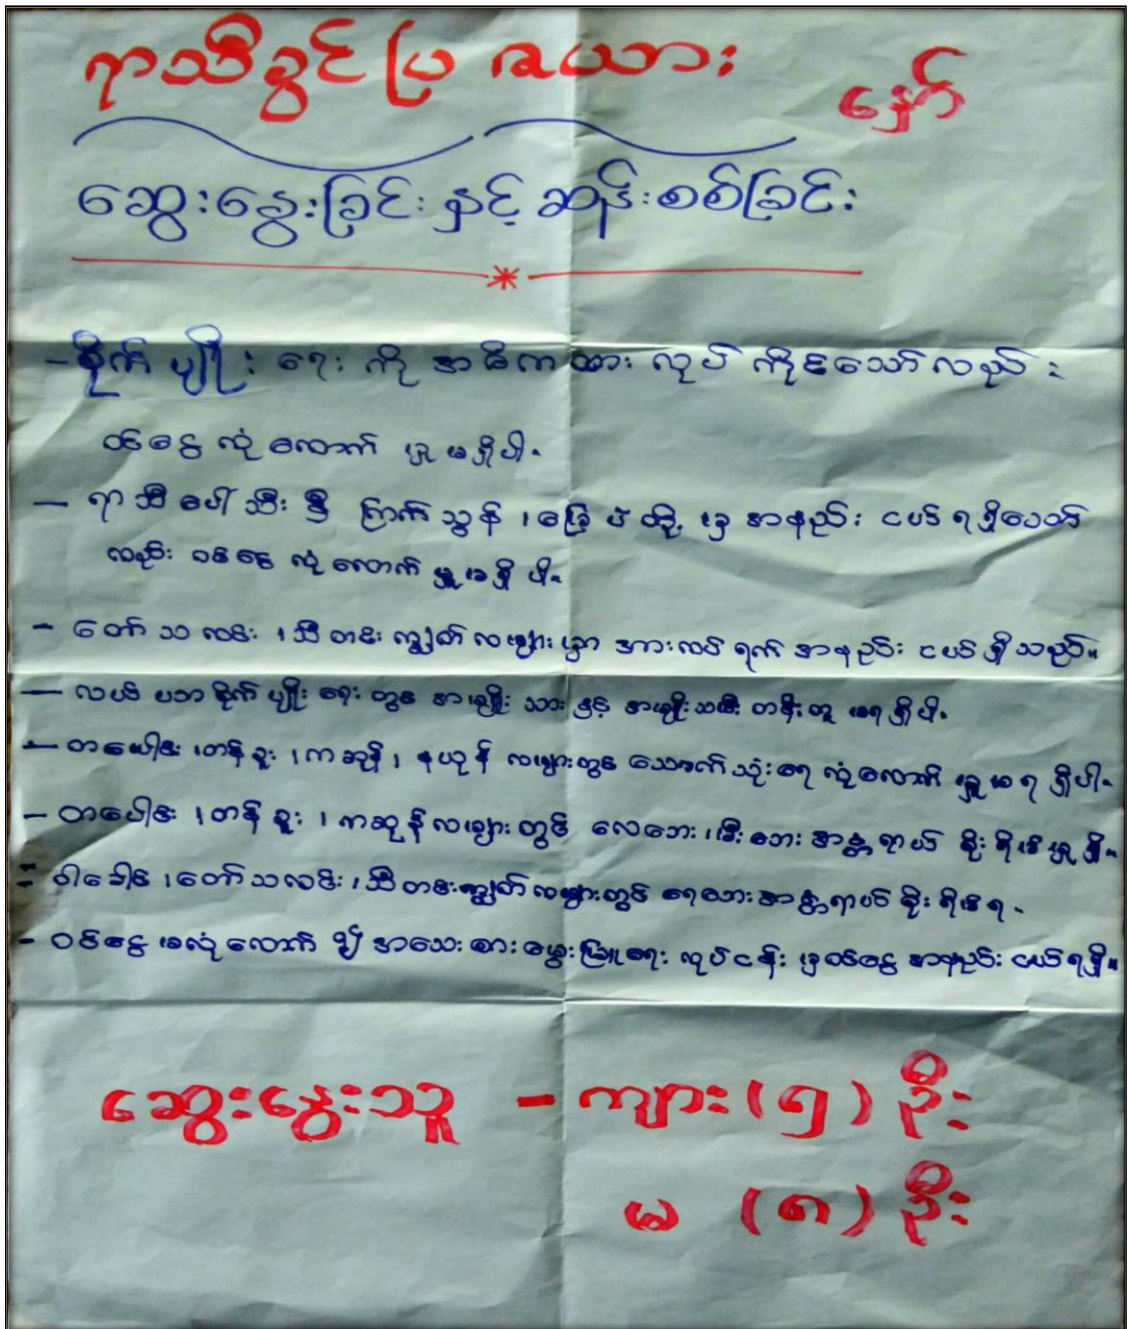 ရာသီခွင်ပြ ဇယား
နှော်
ဆွေးနွေးခြင်း နှင့် ဆန်းစစ်ခြင်း
- စိုက်ပျိုးရေးကို အဓိကထား လုပ်ကိုင်သော်လည်း
ဝင်ငွေ လုံလောက်မှု မရှိပါ။
- ရာသီပေါ်သီးနှံ ကြက်သွန်၊ မြေပဲတို့မှ အနည်းငယ် ရရှိသော်
လည်း ဝင်ငွေ လုံလောက်မှု မရှိပါ။
- တော်သလင်း၊ သီတင်းကျွတ်လများမှာ အားလပ်ရက် အနည်းငယ်ရှိသည်။
- လယ်ယာစိုက်ပျိုးရေးတွင် အမျိုးသားနှင့် အမျိုးသမီး တန်းတူ မရရှိပါ။
- တပေါင်း၊ တန်ခူး၊ ကဆုန်၊ နယုန် လများတွင် သောက်သုံးရေ လုံလောက်မှု မရရှိပါ။
- တပေါင်း၊ တန်ခူး၊ ကဆုန်လများတွင် လေဘေး၊ မီးဘေး အန္တရာယ် စိုးရိမ်မှုရှိ။
- ဝါခေါင်၊ တော်သလင်း၊ သီတင်းကျွတ်လများတွင် ရေဘေးအန္တရာယ် စိုးရိမ်ရ။
- ဝင်ငွေ မလုံလောက်၍ အသေးစားမွေးမြူရေး လုပ်ငန်းမှ ဝင်ငွေ အနည်းငယ်ရရှိ။
ဆွေးနွေးသူ - ကျား (၅) ဦး
မ (၈) ဦး